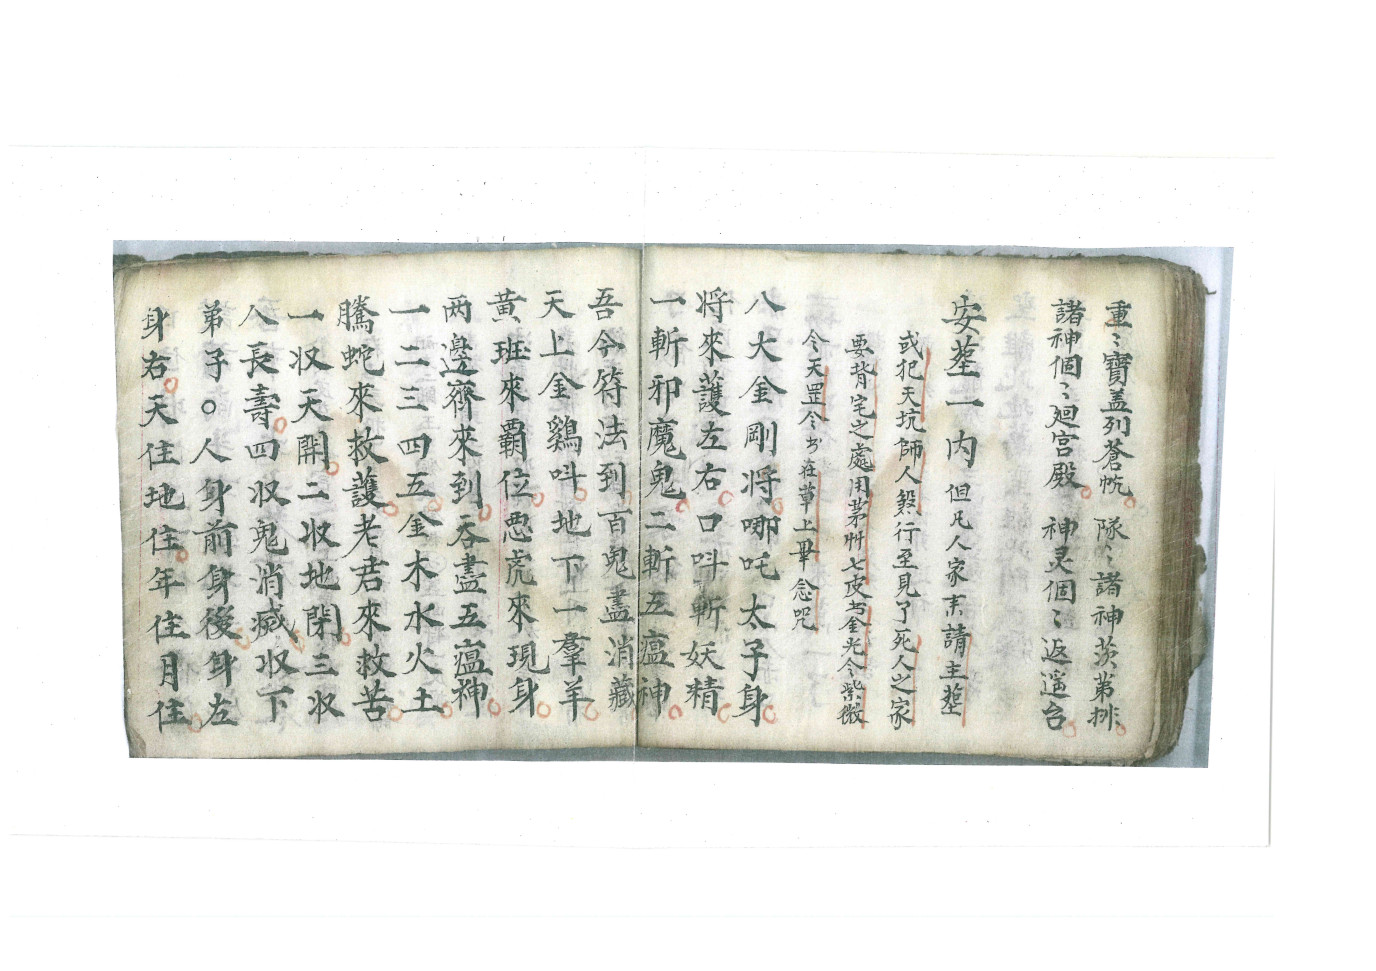 重〻寳盖列蒼帆 隊〻諸神茨苐排
諸神個〻廻宫殿 神灵個〻返遥台
安塟一内但凡人家来請主塟
或犯天坑師人煞行至見了死人之家
要背宅之處用茅艸七皮書金光令紫微
令天罡令書在草上畢念咒
八大金剛将哪吒太子身
将來護左右口呌斬妖精
一斬邪魔鬼二斬五瘟神
吾今符法到百鬼盡消藏
天上金鷄呌地下一羣羊
黄班來覇位悪虎來現身
两邉齊來到吞盡五瘟神
一二三四五金木水火土
騰蛇來救護老君來救苦
一収天開二収地閉三収
人長壽四収鬼消臧収下
弟子〇人身前身後身左
身右天住地住年住月住